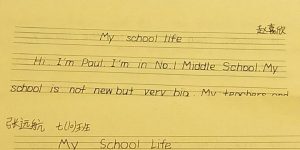 赵嘉欣
My school life
Hi. I'm Paul. I'm in No.1 Middle School. My
school is not new but very big. My teachers and
张远航 七(10)班
My School Life